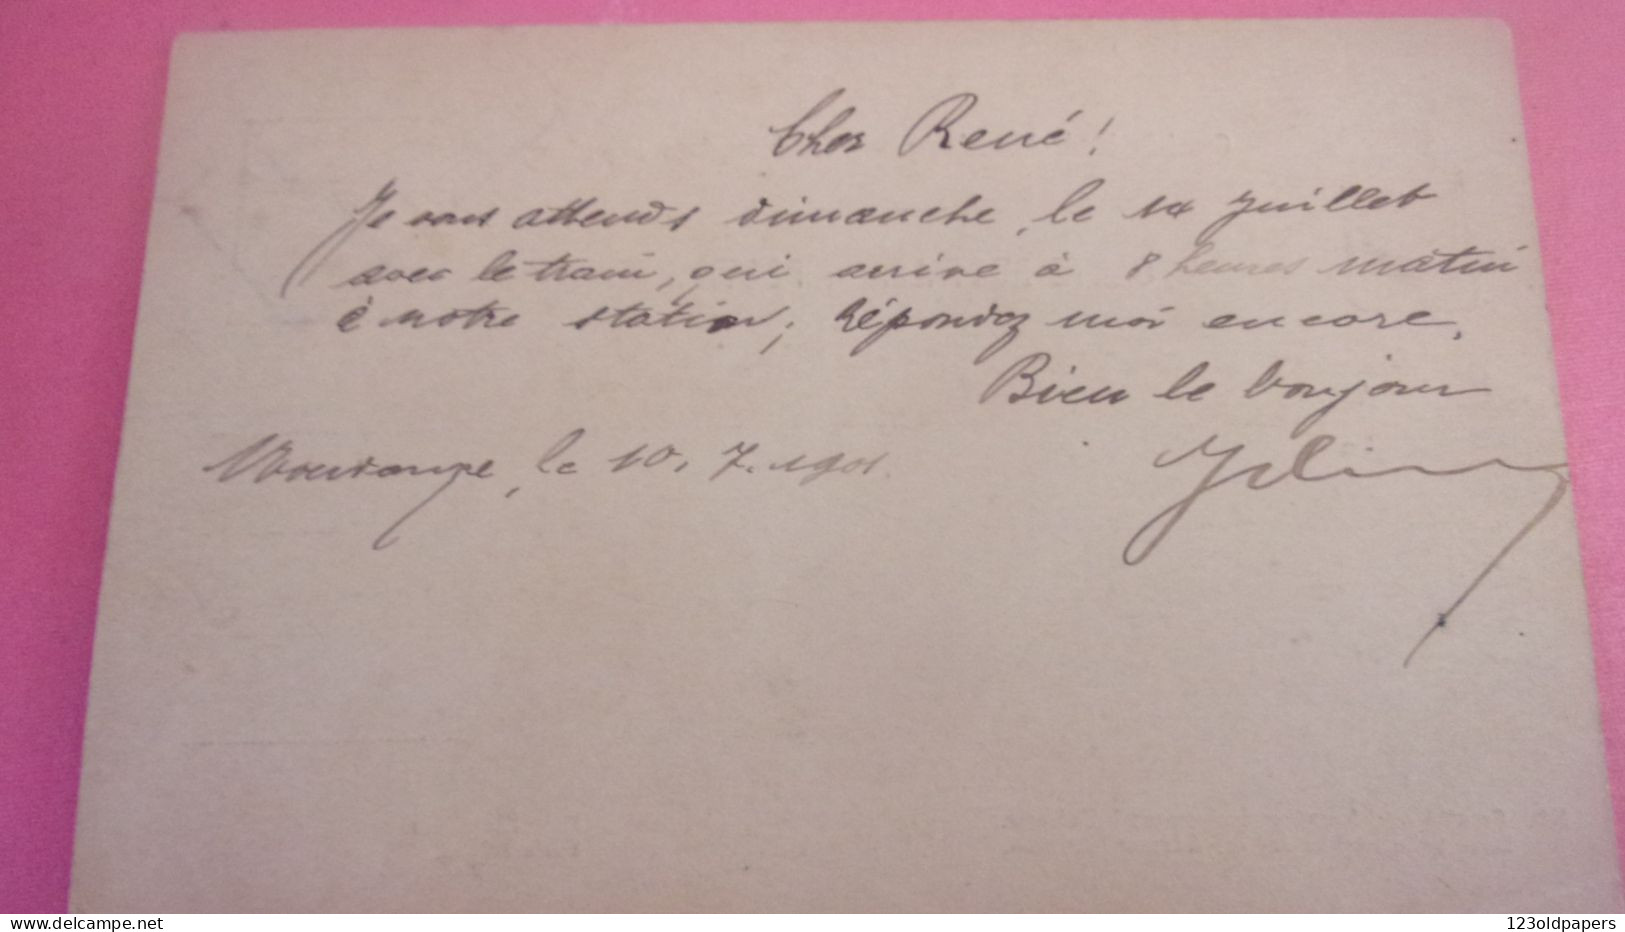 Cher René!
Je vous attends dimanche, le 14 juillet
avec le train, qui arrive à 8 heures matin
à notre station; Répondez moi encore.
Bien le bonjour
le 10. 7. 1901.
delcampe.net
123oldpapers